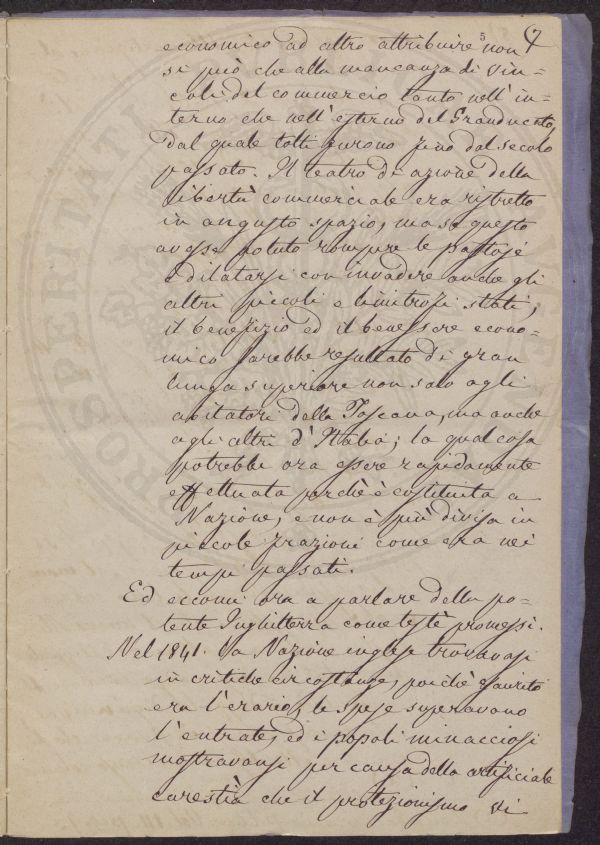 5
7
economico ad altro attribuire non
si può che alla mancanza di vin=
coli del commercio tanto nell'in=
terno che nell'esterno del Granducato,
dal quale tolti furono fino dal secolo
passato. Il teatro di azione della
libertà commerciale era ristretto
in angusto spazio, ma se questo
avesse potuto rompere le pastoje
e dilatarsi con invadere anche gli
altri piccoli e limitrofi stati,
il benefizio ed il benessere econo=
mico sarebbe resultato di gran
lunga superiore non solo agli
abitatori della Toscana, ma anche
agli altri d'Italia; la qual cosa
potrebbe ora essere rapidamente
effettuata perchè è costituita a
Nazione, e non è più divisa in
piccole frazioni come era nei
tempi passati.
Ed eccomi ora a parlare della po=
tente Inghilterra come testè promessi.
Nel 1841. la Nazione inglese trovavasi
in critiche circostanze, poichè esaurito
era l'erario, le spese superavano
l'entrate, ed i popoli minacciosi
mostravansi per causa della artificiale
carestià che il protezionismo vi
PROSPERITATI